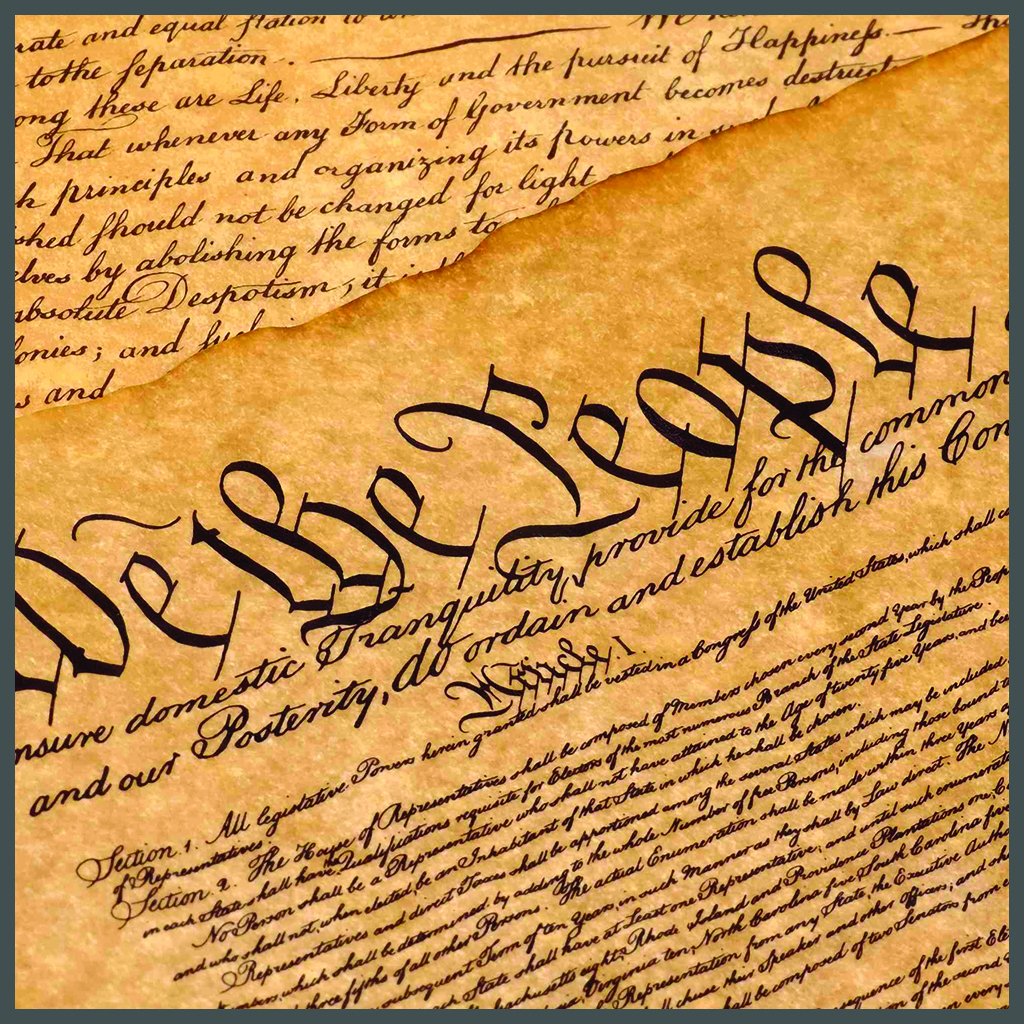 rate and equal station to
to the separation.
ong these are Life, Liberty and the pursuit of Happiness.—
That whenever any Form of Government becomes destruct
principles and organizing its powers in
shed should not be changed for light
elves by abolishing the forms to
absolute Despotism, it
lonies; and such
s and
We the People
nsure domestic Tranquility, provide for the common
and our Posterity, do ordain and establish this Con
Article I.
Section. 1. All legislative Powers herein granted shall be vested in a Congress of the United States, which shall co
of Representatives.
Section. 2. The House of Representatives shall be composed of Members chosen every second Year by the Peop
in each State shall have Qualifications requisite for Electors of the most numerous Branch of the State Legislature.
No Person shall be a Representative who shall not have attained to the Age of twenty five Years, and bee
and who shall not, when elected, be an Inhabitant of that State in which he shall be chosen.
Representatives and direct Taxes shall be apportioned among the several States which may be included
mbers, which shall be determined by adding to the whole Number of free Persons, including those bound t
three fifths of all other Persons. The actual Enumeration shall be made within three Years a
subsequent Term of ten Years, in such Manner as they shall by Law direct. The N
each State shall have at Least one Representative; and until such enumerati
achusetts eight, Rhode Island and Providence Plantations one, Co
Virginia ten, North Carolina five, South Carolina five
Representation from any State, the Executive Autho
ll chuse their Speaker and other Officers; and sha
hall be composed of two Senators from e
sequence of the first Ele
on of the second